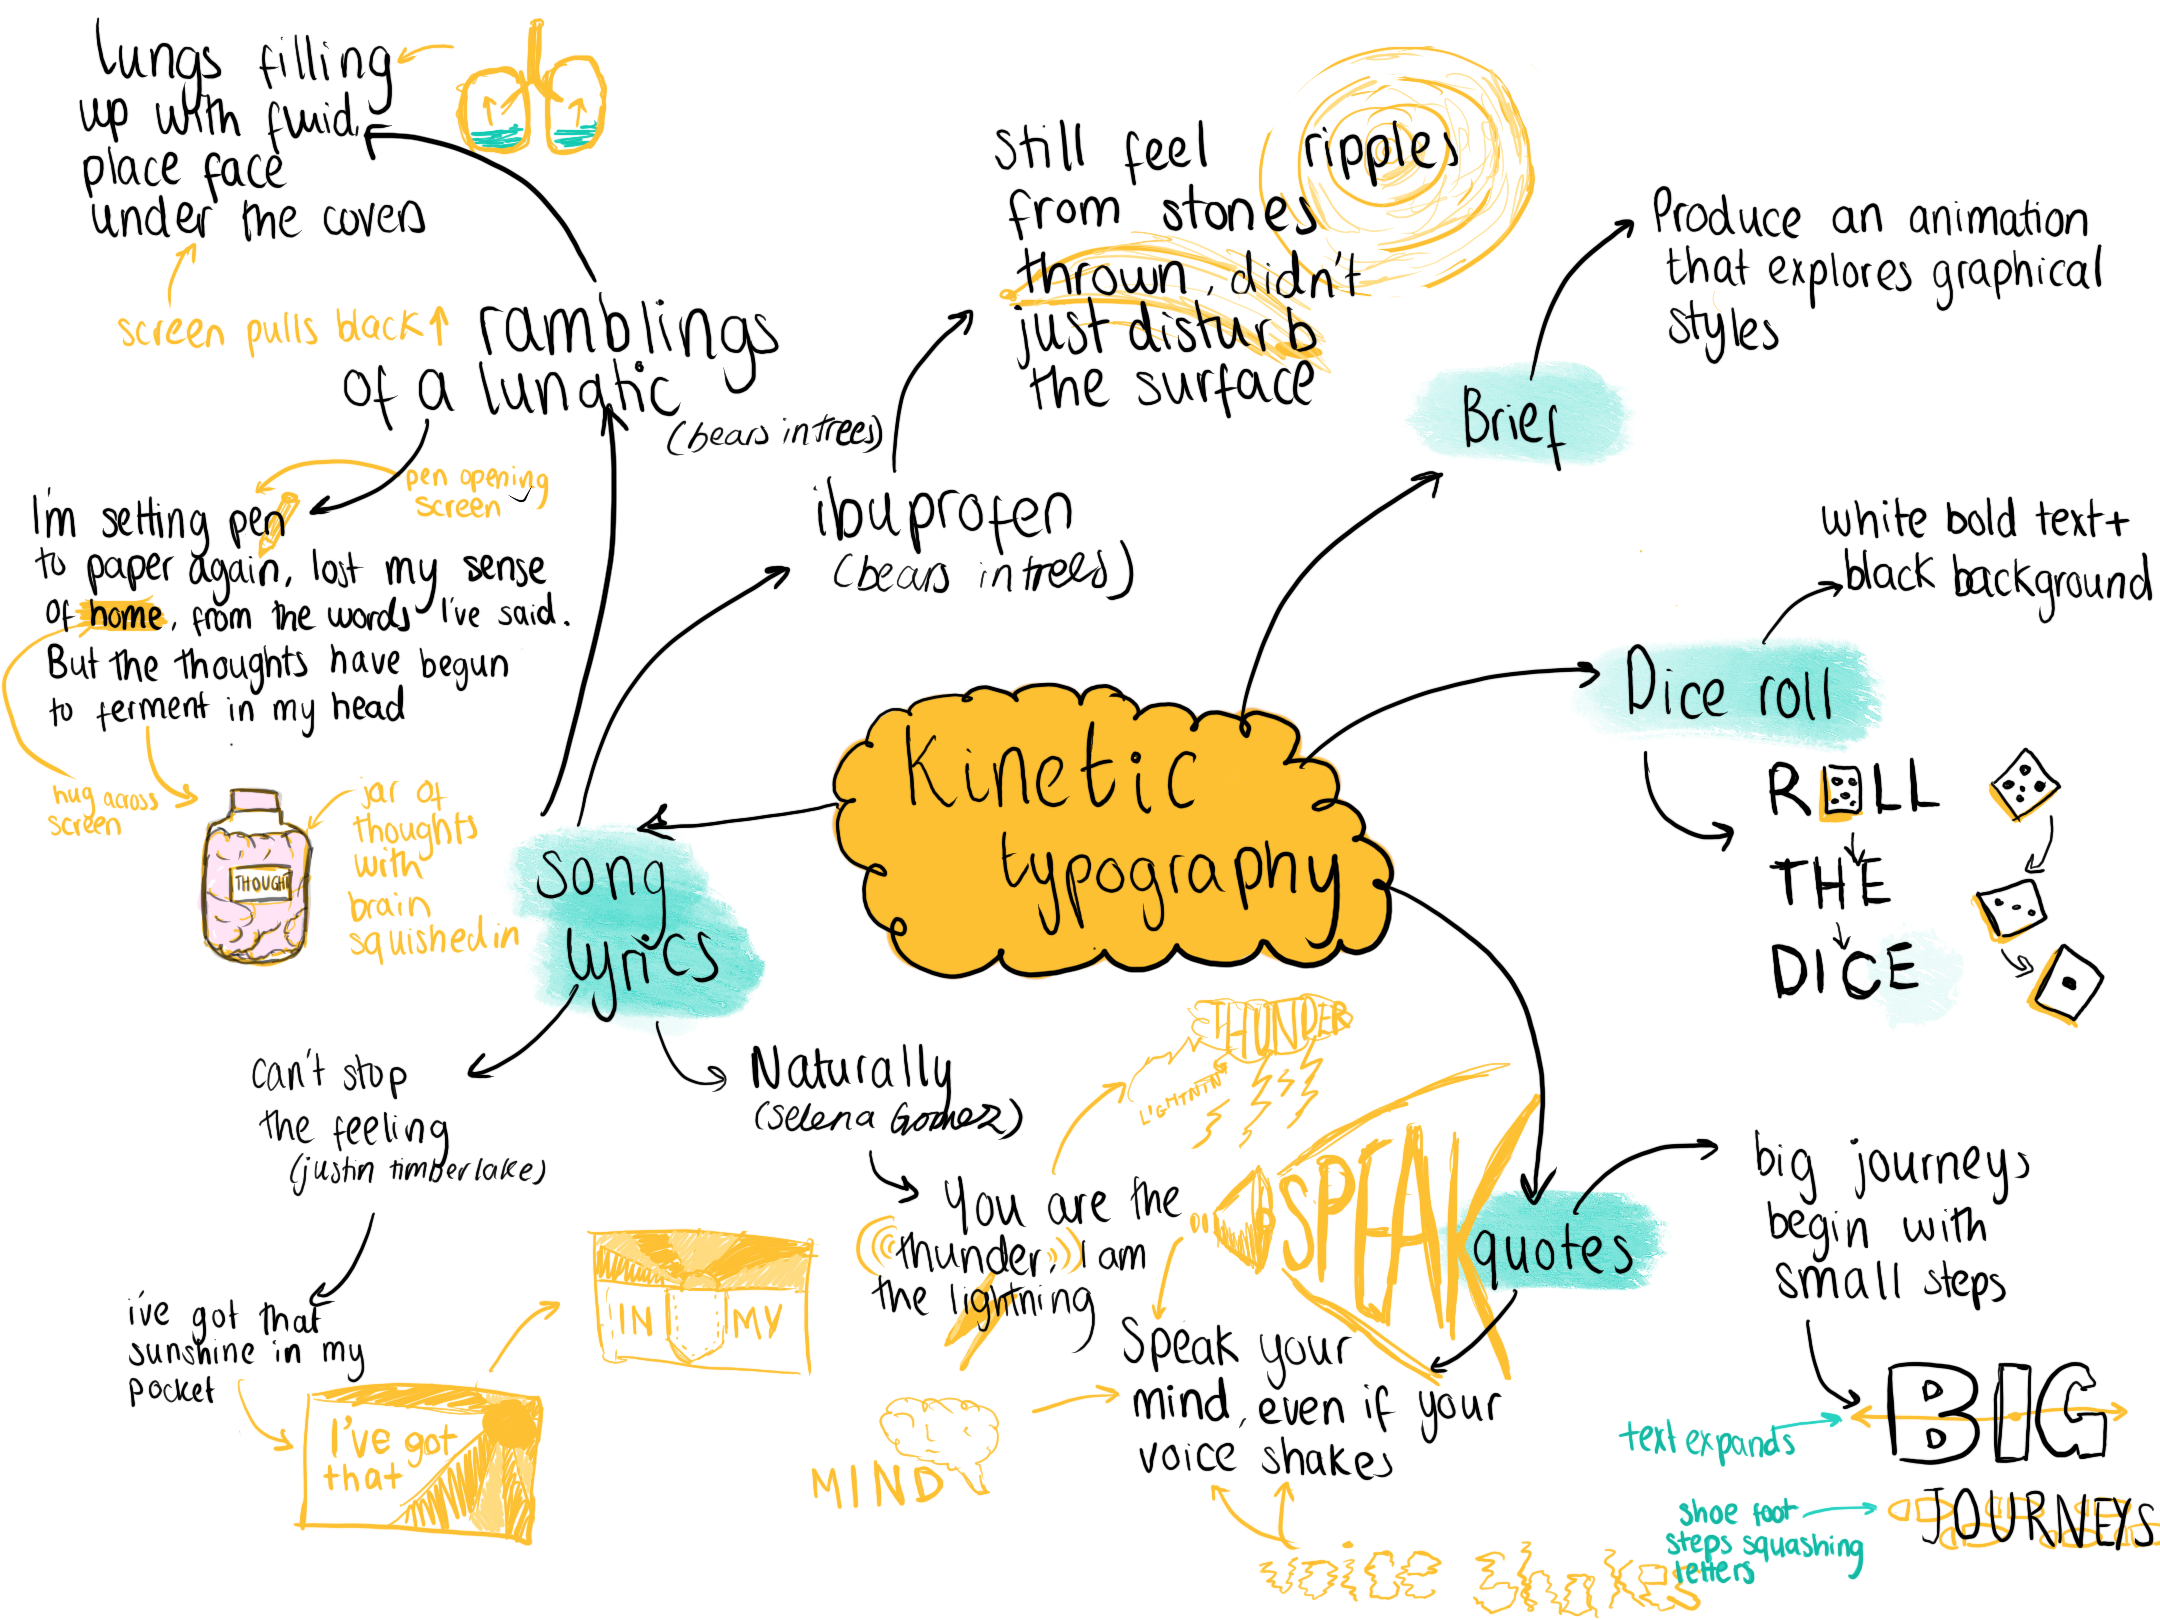 Kinetic
typography
Brief
Produce an animation
that explores graphical
styles
Dice roll
white bold text +
black background
R LL
THE
DICE
quotes
big journeys
begin with
small steps
BIG
JOURNEYS
text expands
shoe foot
steps squashing
letters
Speak your
mind, even if your
voice shakes
SPEAK
MIND
voice shakes
song
lyrics
ramblings
of a lunatic
(bears in trees)
lungs filling
up with fluid,
place face
under the covers
screen pulls black
I'm setting pen
to paper again, lost my sense
of home, from the words I've said.
But the thoughts have begun
to ferment in my head
pen opening
screen
hug across
screen
THOUGHT
jar of
thoughts
with
brain
squished in
ibuprofen
(bears in trees)
Still feel ripples
from stones
thrown, didn't
just disturb
the surface
Naturally
(Selena Gomez)
You are the
thunder, I am
the lightning
THUNDER
LIGHTNIN
can't stop
the feeling
(justin timberlake)
i've got that
sunshine in my
pocket
I've got
that
IN MY